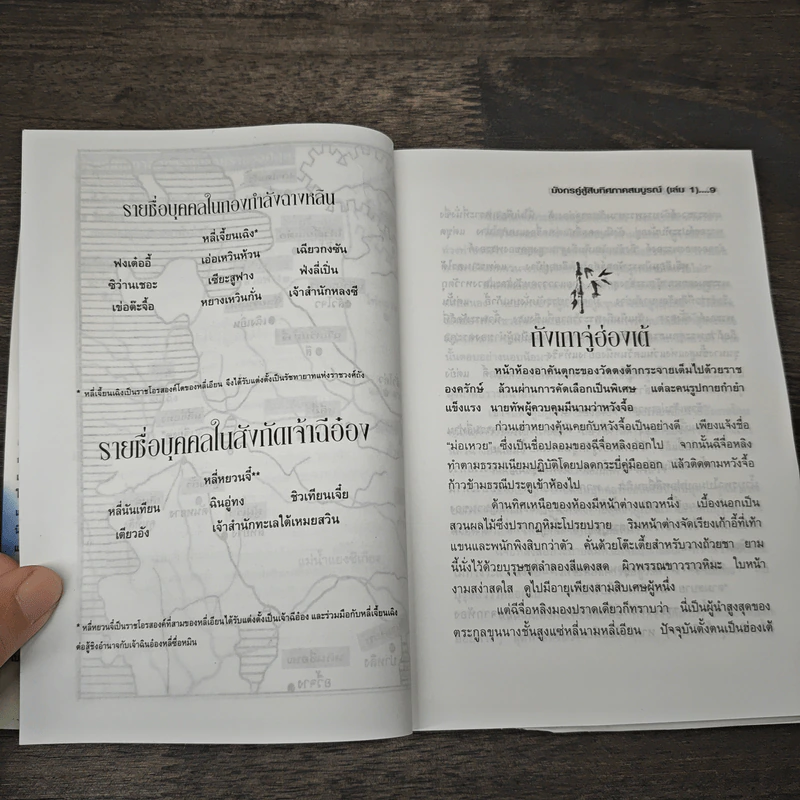 รายชื่อบุคคลในกองกำลังฉางหลิน
หลี่เจี้ยนเฉิง*
ฟงเต๋ออี้ เอ่อเหวินห้วน เฉียวกงซัน
ซิว่านเชอะ เซียะสูฟาง ฟงลี่เปิ่น
เข่อต๊ะจื้อ หยางเหวินกั้น เจ้าสำนักหลงซี
* หลี่เจี้ยนเฉิงเป็นราชโอรสองค์โตของหลี่เอียน จึงได้รับแต่งตั้งเป็นรัชทายาทแห่งราชวงศ์ถัง
รายชื่อบุคคลในสังกัดเจ้าฉีอ๋อง
หลี่หยวนจี๋**
หลี่นันเทียน ฉินอู่ทง ชิวเทียนเจี๋ย
เตียวอัง เจ้าสำนักทะเลใต้เหมยสวิน
* หลี่หยวนจี๋เป็นราชโอรสองค์ที่สามของหลี่เอียนได้รับแต่งตั้งเป็นเจ้าฉีอ๋อง และร่วมมือกับหลี่เจี้ยนเฉิง
ต่อสู้ชิงอำนาจกับเจ้าฉินอ๋องหลี่ซื่อหมิน
มังกรคู่สู้สิบทิศภาคสมบูรณ์ (เล่ม 1)....9
ถังเกาจู่ฮ่องเต้
หน้าห้องอาคันตุกะของวัดตงต้ากระจายเต็มไปด้วยราช
องครักษ์ ล้วนผ่านการคัดเลือกเป็นพิเศษ แต่ละคนรูปกายกำยำ
แข็งแรง นายทัพผู้ควบคุมมีนามว่าหวังจื้อ
ก่วนเฮ่าหยางคุ้นเคยกับหวังจื้อเป็นอย่างดี เพียงแจ้งชื่อ
"ม่อเหวย" ซึ่งเป็นชื่อปลอมของฉีจื่อหลิงออกไป จากนั้นฉีจื่อหลิง
ทำตามธรรมเนียมปฏิบัติโดยปลดกระบี่คู่มือออก แล้วติดตามหวังจื้อ
ก้าวข้ามธรณีประตูเข้าห้องไป
ด้านทิศเหนือของห้องมีหน้าต่างแถวหนึ่ง เบื้องนอกเป็น
สวนผลไม้ซึ่งปรากฏหิมะโปรยปราย ริมหน้าต่างจัดเรียงเก้าอี้ที่เท้า
แขนและพนักพิงสิบกว่าตัว คั่นด้วยโต๊ะเตี้ยสำหรับวางถ้วยชา ยาม
นี้นั่งไว้ด้วยบุรุษชุดลำลองสีแดงสด ผิวพรรณขาวราวหิมะ ใบหน้า
งามสง่าสดใส ดูไปมีอายุเพียงสามสิบเศษผู้หนึ่ง
แต่ฉีจื่อหลิงมองปราดเดียวก็ทราบว่า นี่เป็นผู้นำสูงสุดของ
ตระกูลขุนนางชั้นสูงแซ่หลี่นามหลี่เอียน ปัจจุบันตั้งตนเป็นฮ่องเต้